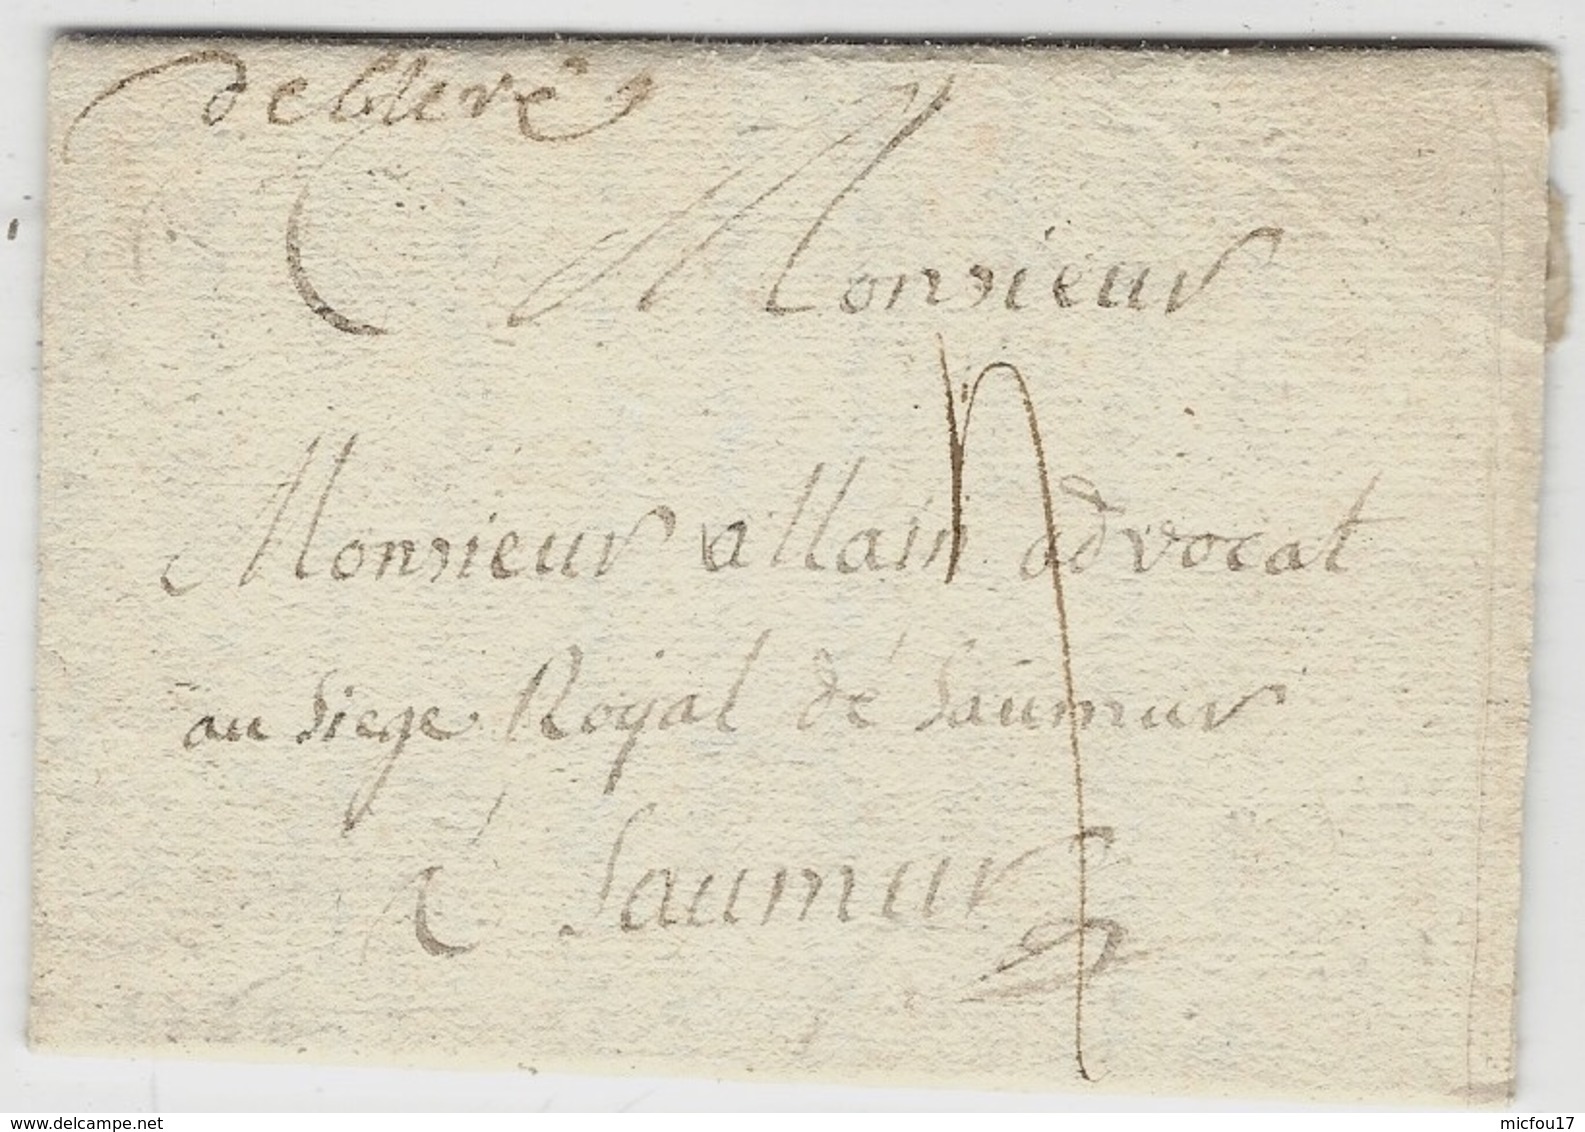 Monsieur
Monsieur allain advocat
au siege Royal dé Saumur
a Saumur
delcampe.net
micfou17